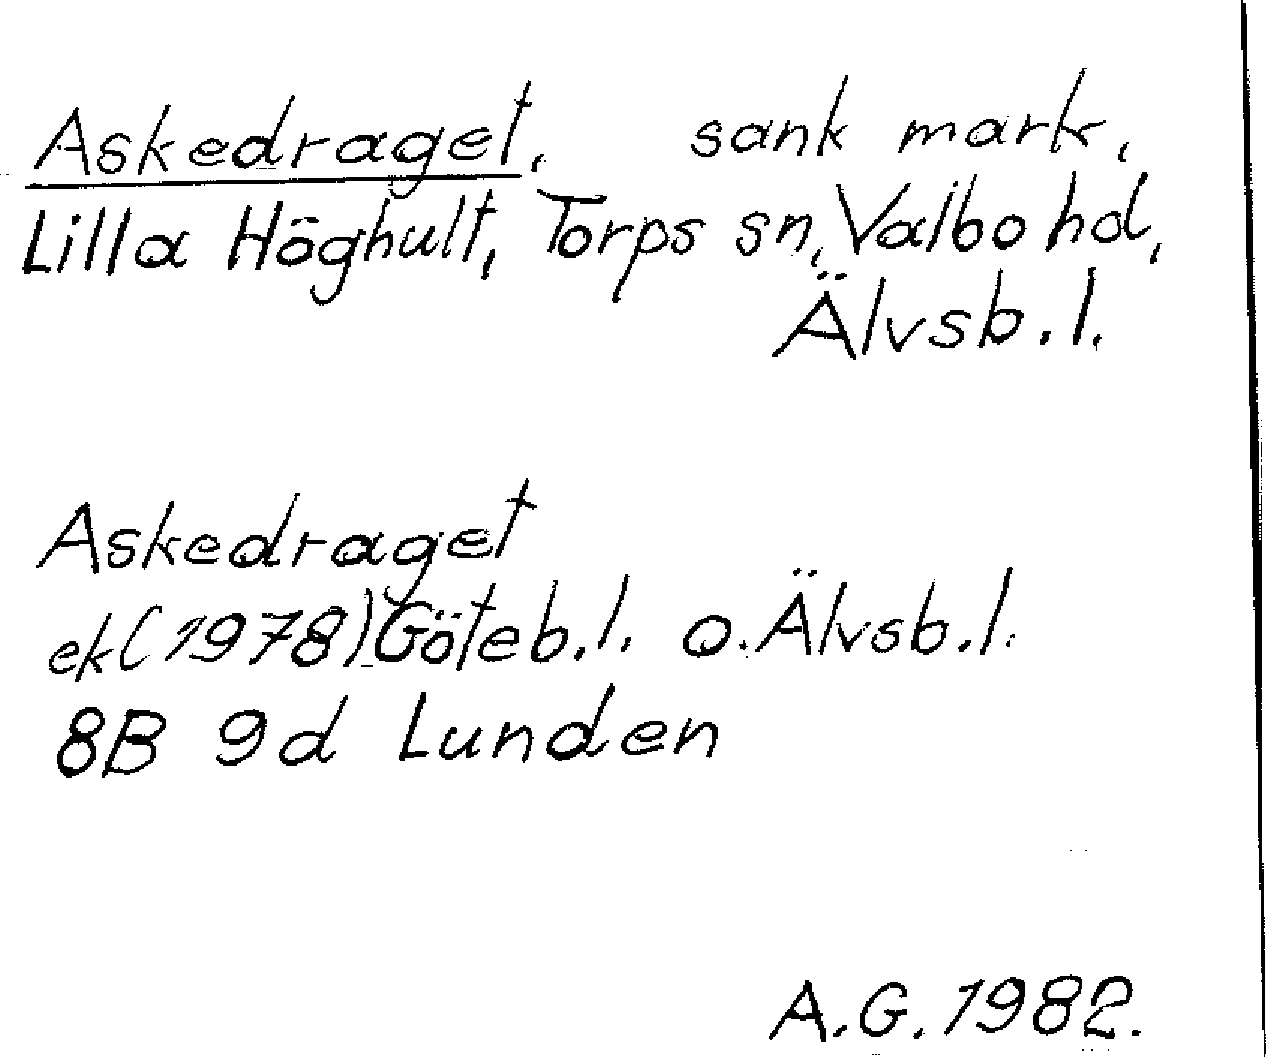 Askedraget, sank mark,
Lilla Höghult, Torps sn, Valbo hd,
Älvsb. l.
Askedraget
ek (1978) Göteb. l. o. Älvsb. l.
8B 9d Lunden
A.G. 1982.